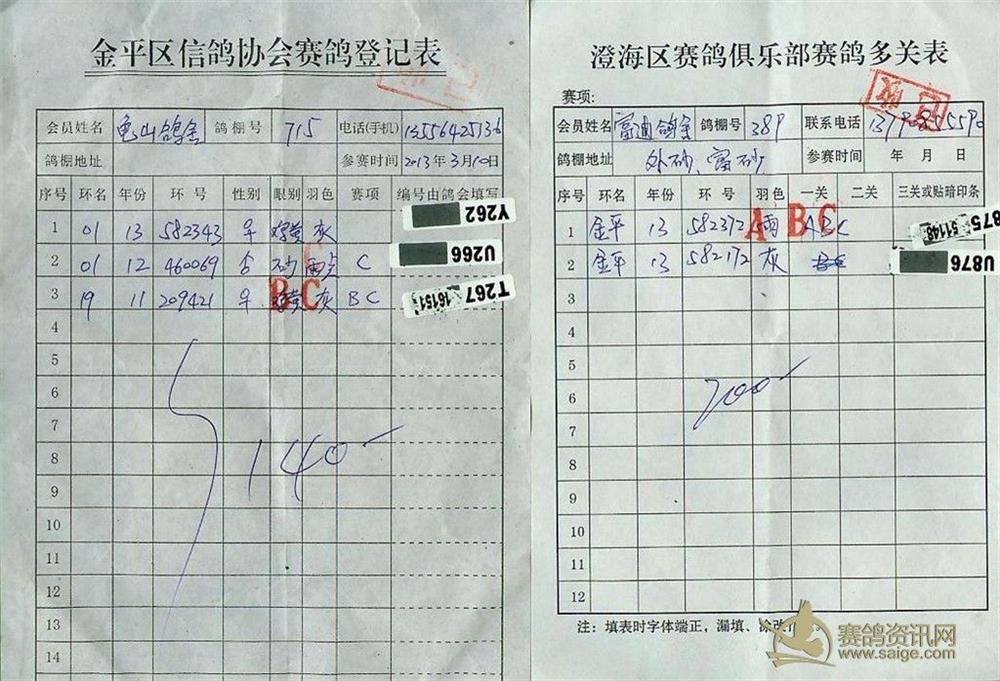 金平区信鸽协会赛鸽登记表
会员姓名 龟山鸽舍 鸽棚号 715 电话(手机) 13556425136
鸽棚地址 参赛时间 2013年3月10日
序号 环名 年份 环号 性别 眼别 羽色 赛项 编号由鸽会填写
1 01 13 582343 灰 Y262
2 01 12 460069 砂 雨点 C U266
3 19 11 209421 灰 BC T267 16151
B C
4
5
6
7
8
9
10
11
12
13
14
140
澄海区赛鸽俱乐部赛鸽多关表
赛项:
会员姓名 富迪鸽舍 鸽棚号 389 联系电话 13790855590
鸽棚地址 外砂、富砂 参赛时间 年 月 日
序号 环名 年份 环号 羽色 一关 二关 三关或贴暗印条
1 金平 13 582372 雨 ABC 875 51148
A B C
2 金平 13 582172 灰 U876
3
4
5
6
7
8
9
10
11
12
200
注：填表时字体端正，漏填、涂改
赛鸽资讯网
www.saige.com